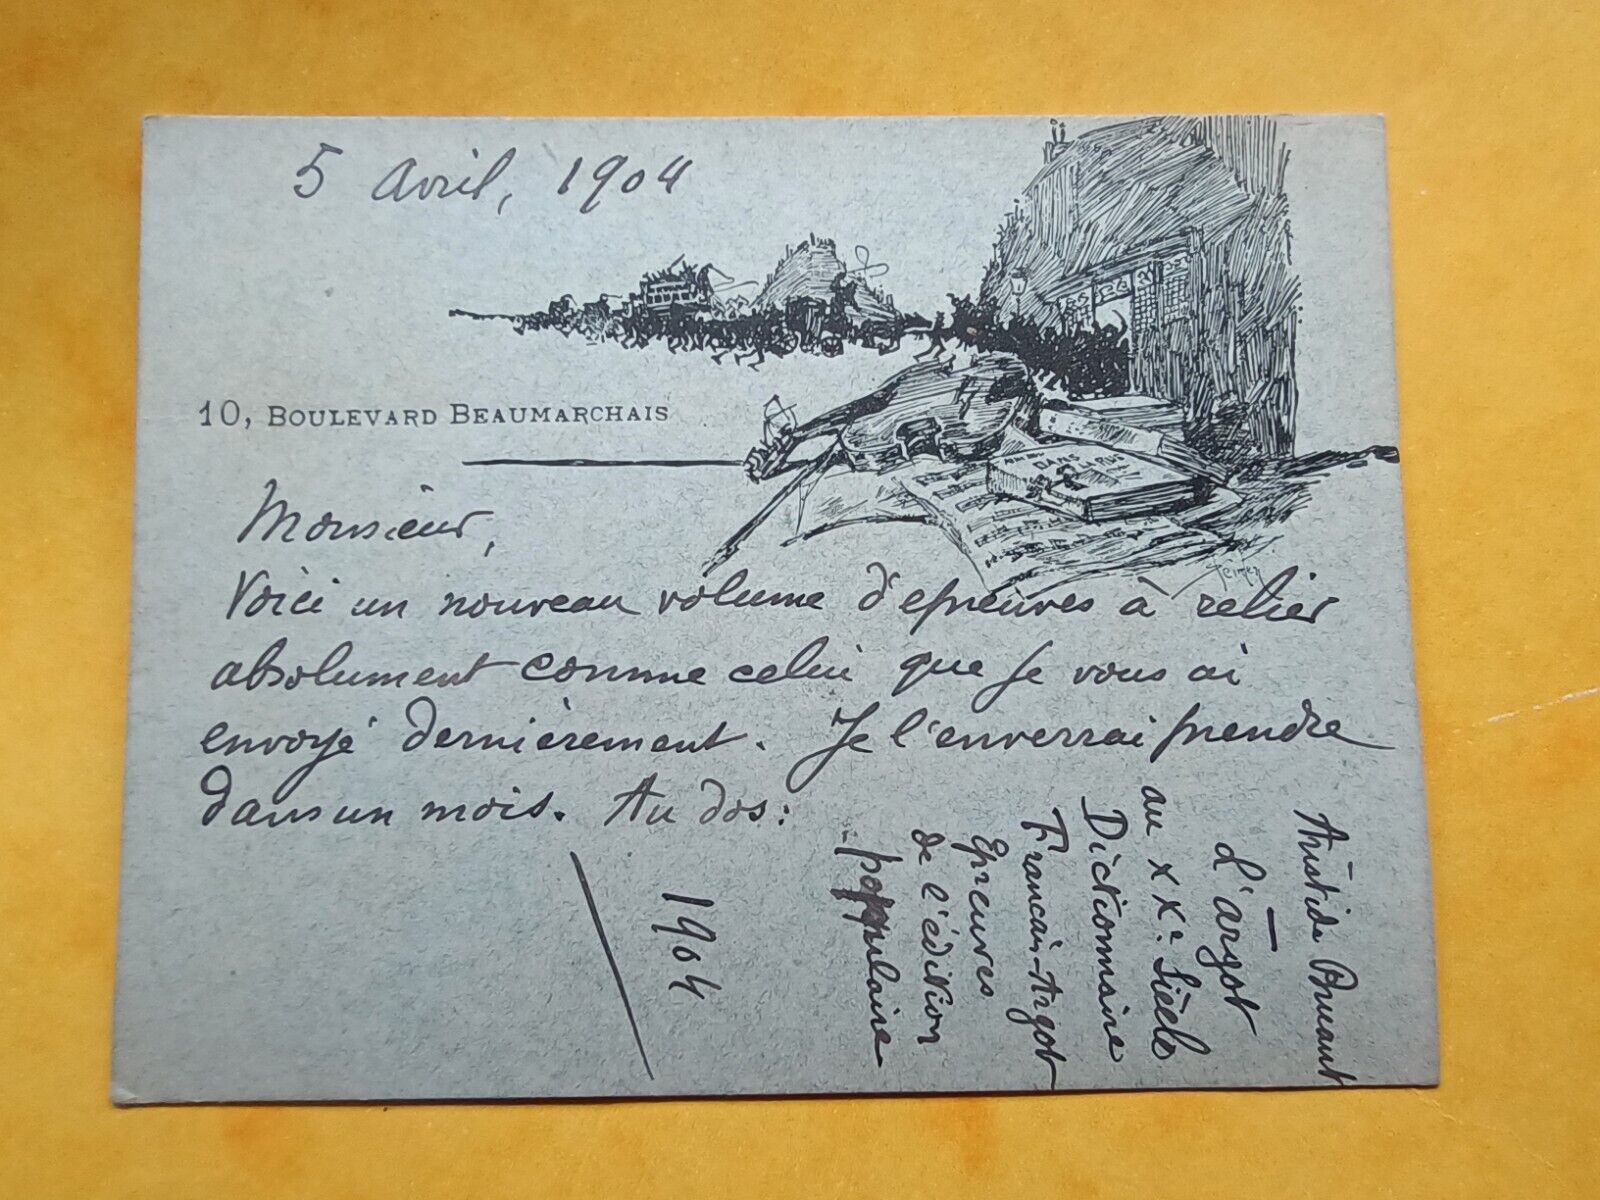 5 Avril, 1904
10, BOULEVARD BEAUMARCHAIS
DANS
Monsieur,
Voici un nouveau volume d'epreuves à relier
absolument comme celui que je vous ai
envoyé dernièrement. Je l'enverrai prendre
dans un mois. Au dos:
Aristide Bruant
—
L'argot
au XXe. Siècle
Dictionnaire
Francais-Argot
Epreuves
de l'édition
populaire
1904